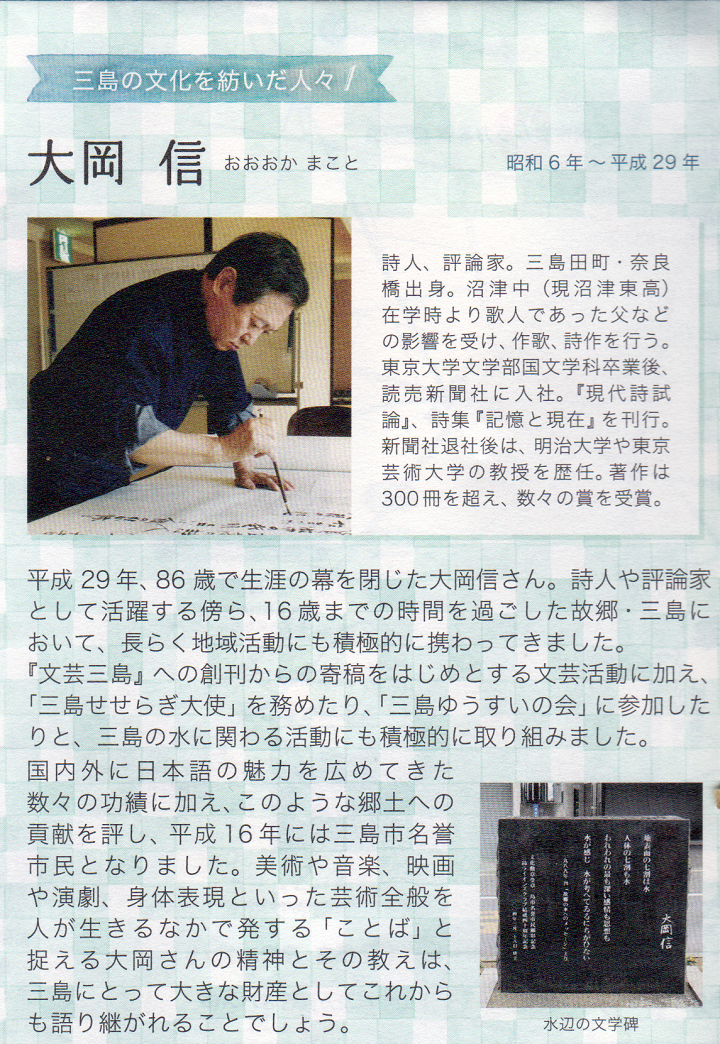 三島の文化を紡いだ人々 1
大岡 信 おおおか まこと 昭和6年～平成29年
詩人、評論家。三島田町・奈良
橋出身。沼津中（現沼津東高）
在学時より歌人であった父など
の影響を受け、作歌、詩作を行う。
東京大学文学部国文学科卒業後、
読売新聞社に入社。『現代詩試
論』、詩集『記憶と現在』を刊行。
新聞社退社後は、明治大学や東京
芸術大学の教授を歴任。著作は
300冊を超え、数々の賞を受賞。
平成29年、86歳で生涯の幕を閉じた大岡信さん。詩人や評論家
として活躍する傍ら、16歳までの時間を過ごした故郷・三島に
おいて、長らく地域活動にも積極的に携わってきました。
『文芸三島』への創刊からの寄稿をはじめとする文芸活動に加え、
「三島せせらぎ大使」を務めたり、「三島ゆうすいの会」に参加した
りと、三島の水に関わる活動にも積極的に取り組みました。
国内外に日本語の魅力を広めてきた
数々の功績に加え、このような郷土への
貢献を評し、平成16年には三島市名誉
市民となりました。美術や音楽、映画
や演劇、身体表現といった芸術全般を
人が生きるなかで発する「ことば」と
捉える大岡さんの精神とその教えは、
三島にとって大きな財産としてこれから
も語り継がれることでしょう。
地表面の七割は水
人体の七割も水
われわれの最も深い感情も思想も
水が感じ 水が考へてゐるにちがひない
大岡信
水辺の文学碑